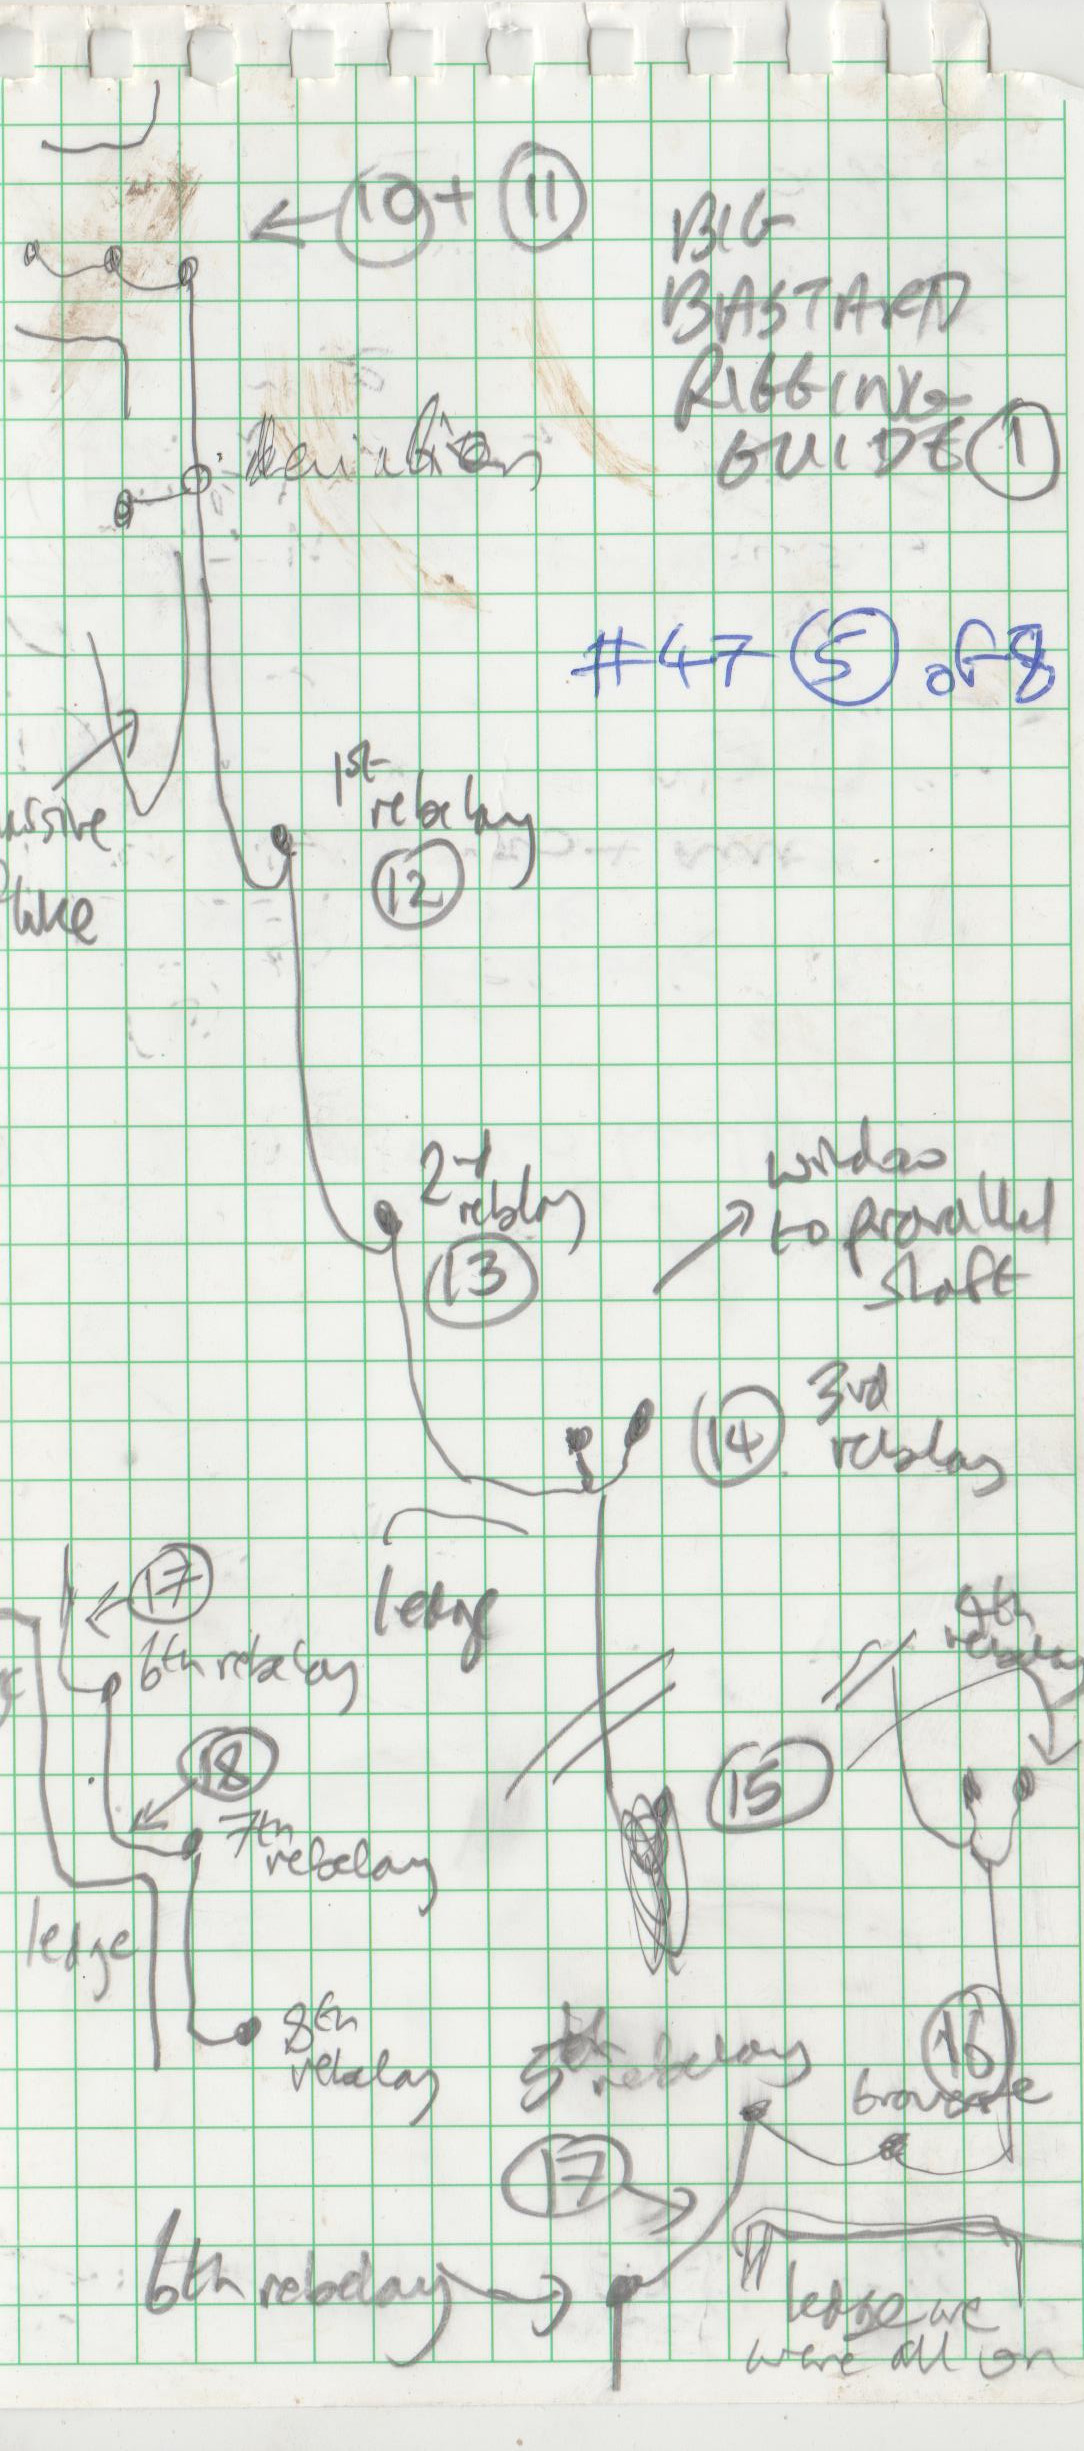 10 + 11
BIG
BASTARD
RIGGING
GUIDE 1
deviation
#47 5 of 8
1st
rebelay
12
2nd
rebelay
13
window
to parallel
shaft
14
3rd
rebelay
ledge
17
6th rebelay
18
7th
rebelay
ledge
8th
rebelay
4th
rebelay
15
16
traverse
5th rebelay
17
6th rebelay
ledge we
were all on